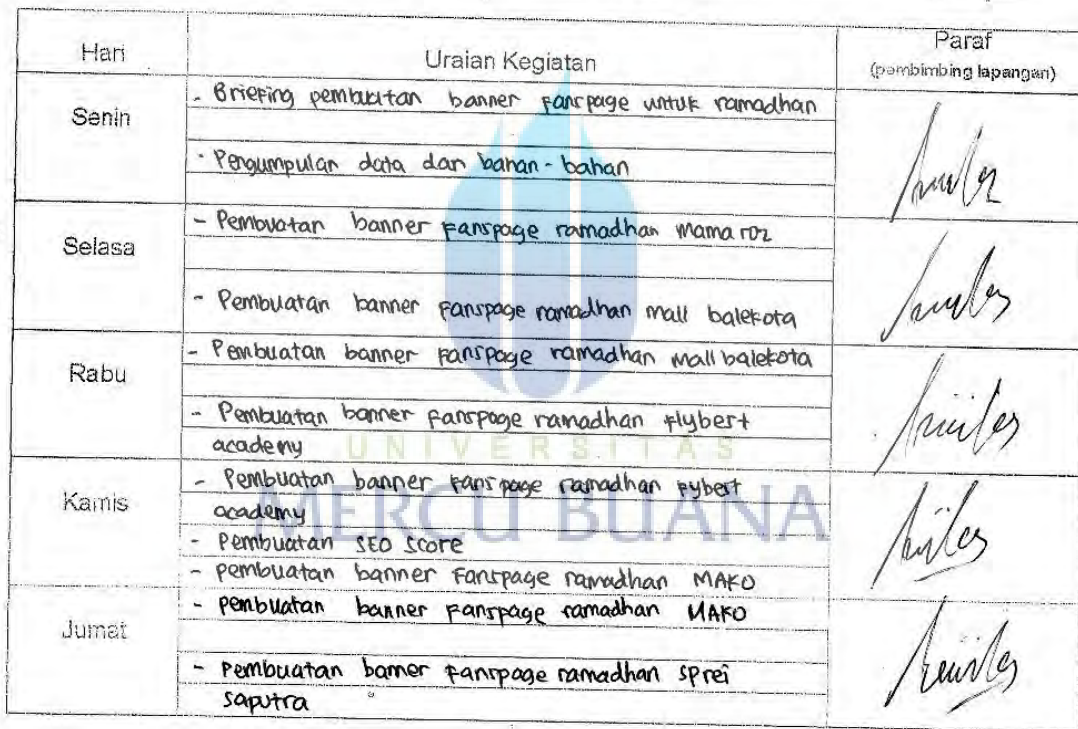 Hari Uraian Kegiatan Paraf
(pembimbing lapangan)
Senin
- Briefing pembuatan banner fanspage untuk ramadhan
- Pengumpulan data dan bahan-bahan
Selasa
- Pembuatan banner fanspage ramadhan mama roz
- Pembuatan banner fanspage ramadhan mall balekota
Rabu
- Pembuatan banner fanspage ramadhan mall balekota
- Pembuatan banner fanspage ramadhan flybert
academy
UNIVERSITAS
Kamis
- Pembuatan banner fanspage ramadhan fybert
academy
MERCU BUANA
- Pembuatan SEO Score
- pembuatan banner fanspage ramadhan MAKO
Jumat
- pembuatan banner fanspage ramadhan MAKO
- pembuatan banner fanspage ramadhan sprei
saputra